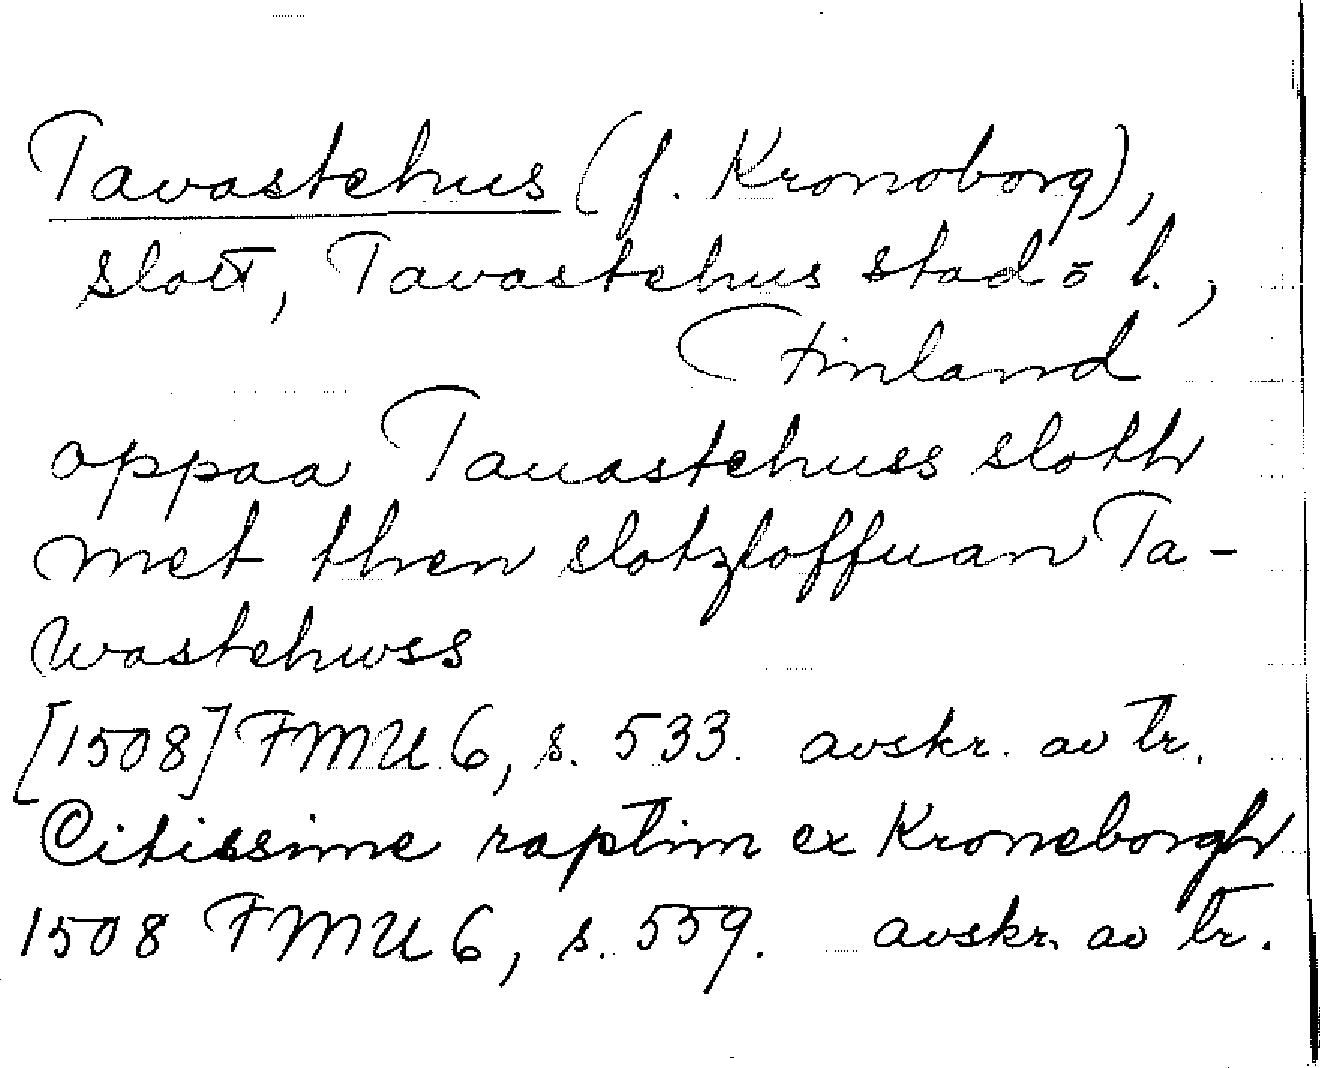 Tavastehus (f. Kronoborg),
slott, Tavastehus stad o l.,
Finland
oppaa Tauastehuss sloth
met then slotzloffuan Ta-
wastehwss
[1508] FMU 6, s. 533. avskr. av tr.
Citissime raptim ex Kroneborgh
1508 FMU 6, s. 559. avskr. av tr.